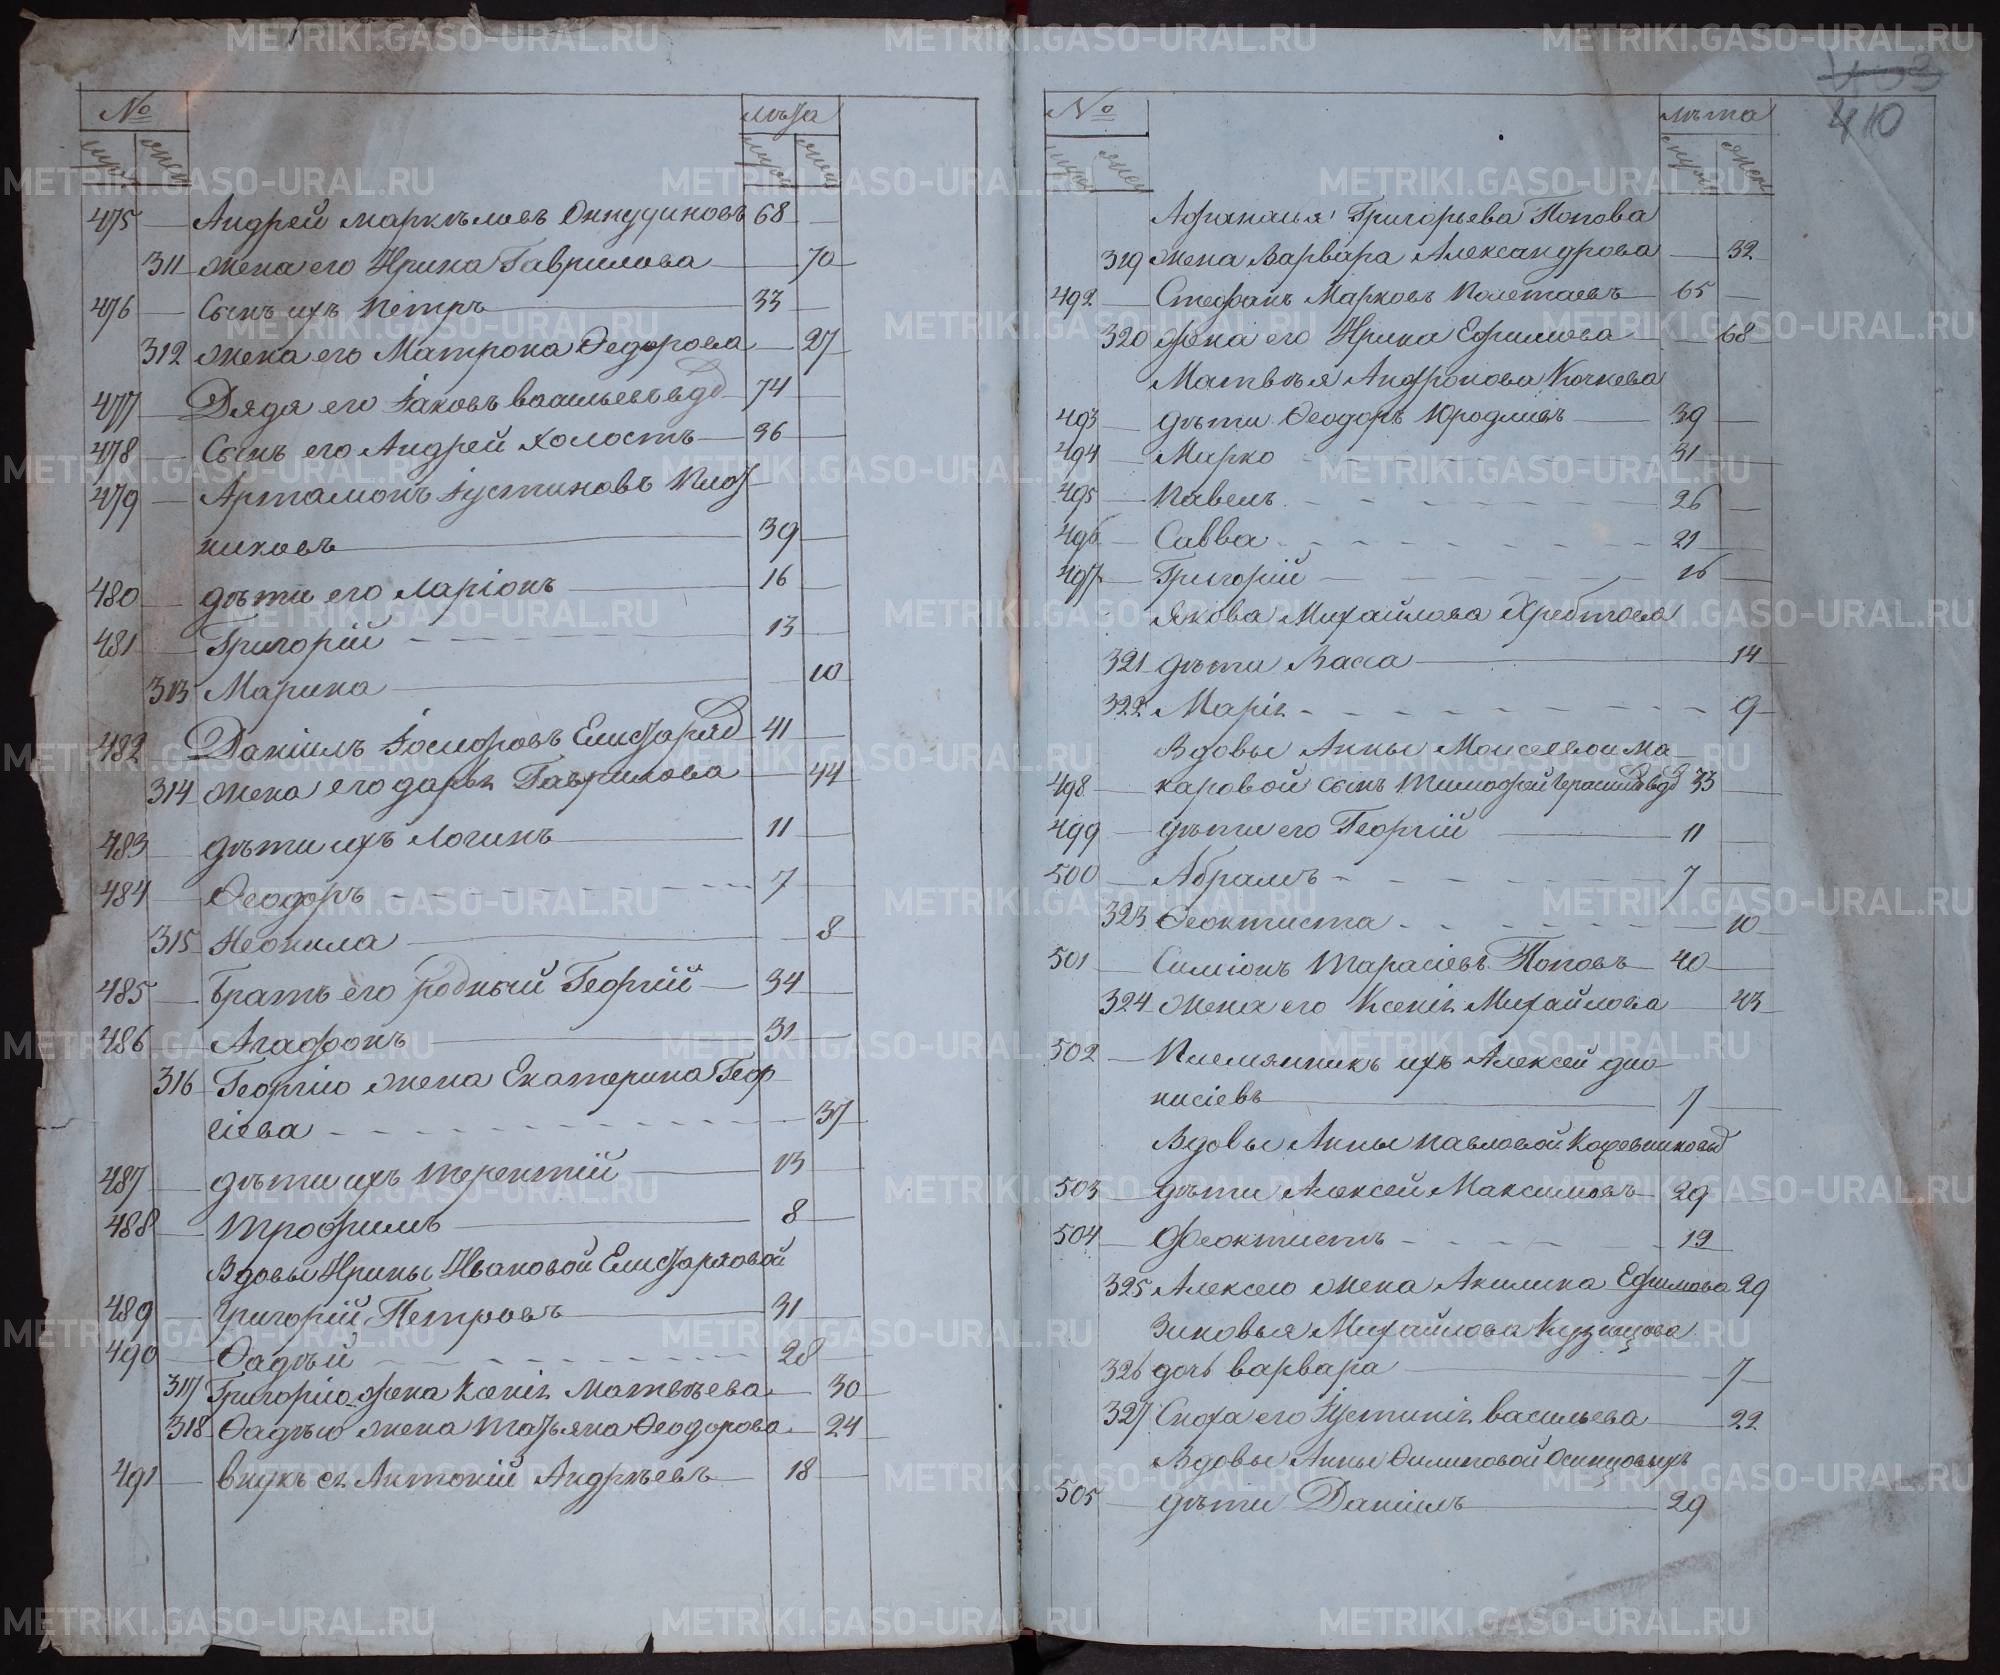 № лѣта
муж жен муж жен
475 — Андрей Маркѣловъ Анкудиновъ 68 —
311 жена его Ирина Гаврилова — 70
476 — Сынъ ихъ Петръ — 33 —
312 жена его Матрона Ѳедорова — 27
477 — Дядя его Іаковъ Васильевъ вд 74 —
478 — Сынъ его Андрей холостъ — 36 —
479 — Артамонъ Іустиновъ Плот-
никовъ — 39 —
480 — дѣти его Ларіонъ — 16 —
481 — Григорій — 13 —
313 Марина — 10
482 Даніилъ Іосифовъ Елизаръ 41 —
314 жена его Дарья Гаврилова — 44
483 — дѣти ихъ Логинъ — 11 —
484 — Ѳеодоръ — 7 —
315 Неонила — 8
485 — Братъ его родный Георгій — 34 —
486 — Агафонъ — 31 —
316 Георгію жена Екатерина Геор-
гіева — 37
487 — дѣти ихъ Терентій — 13 —
488 — Трофимъ — 8 —
Вдовы Ирины Ивановой Елизаровой
489 — Григорій Петровъ — 31 —
490 — Ѳадѣй — 28 —
317 Григорію жена Ксенія Матвѣева — 30
318 Ѳадѣю жена Татьяна Ѳеодорова — 24
491 — внукъ ея Антоній Андрѣевъ — 18 —
403
410
№ лѣта
муж жен муж жен
Афанасья Григорьева Попова
319 жена Варвара Александрова — 32
492 — Стефанъ Марковъ Полетаевъ — 65 —
320 жена его Ирина Ефимова — 68
Матвѣя Андронова Кочнева
493 — дѣти Ѳеодоръ Юродливъ — 39 —
494 — Марко — 31 —
495 — Павелъ — 26 —
496 — Савва — 21 —
497 — Григорій — 16 —
Якова Михайлова Хребтова
321 дѣти Васса — 14
322 Марія — 9
Вдовы Анны Моисеевой Ма-
498 — каровой сынъ Тимофей вд 33 —
499 — дѣти его Георгій — 11 —
500 — Абрамъ — 7 —
323 Ѳеоктиста — 10
501 — Симіонъ Тарасіевъ Поповъ — 40 —
324 жена его Ксенія Михайлова — 43
502 — Племянникъ ихъ Алексей Дио-
нисіевъ — 7 —
Вдовы Анны Павловой Кожевниковой
503 — дѣти Алексей Максимовъ — 29 —
504 — Феоктистъ — 19 —
325 Алексею жена Акилина Ефимова 29
Зиновья Михайлова Кузнцова
326 дочь Варвара — 7
327 Сноха его Іустинія Васильева — 22
Вдовы Анны Филиповой Осинцовыхъ
505 — дѣти Даніилъ — 29